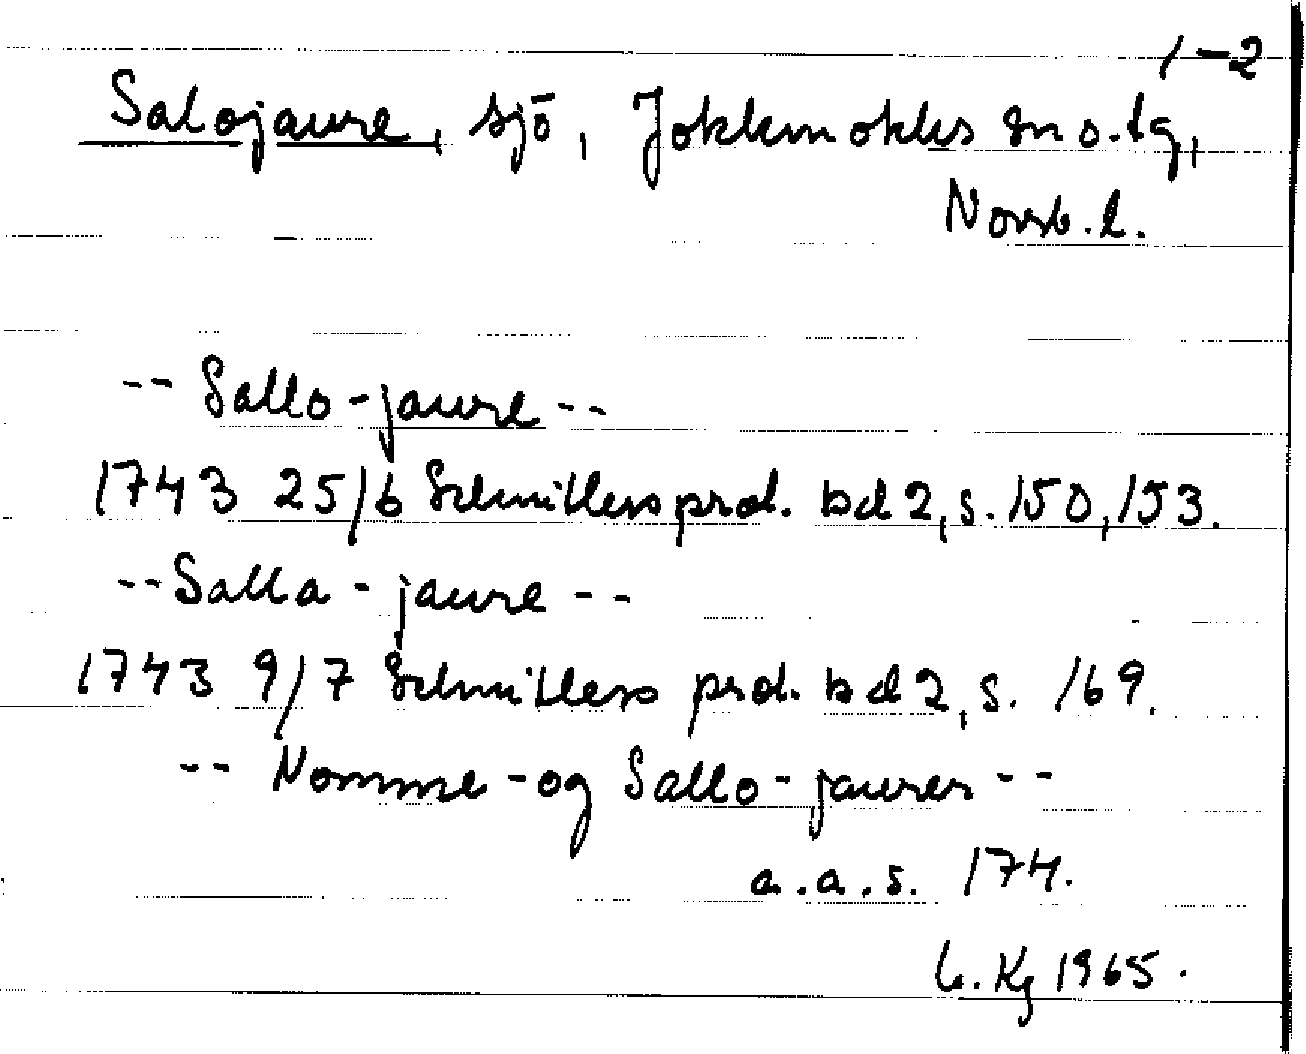 1-2
Salojaure, sjö, Jokkmokks sn o. tg,
Norrb. l.
-- Sallo-jaure --
1743 25/6 Schnitlers prot. bd 2, s. 150, 153.
-- Salla-jaure --
1743 9/7 Schnitlers prot. bd 2, s. 169.
-- Nomme- og Sallo-jaurer --
a.a.s. 174.
Kg 1965.